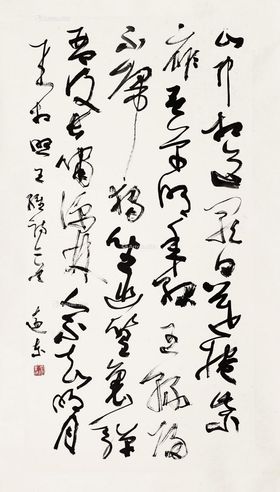 山中相送罷日暮掩柴
扉春草明年綠王孫歸
不歸獨坐幽篁裏彈
琴復長嘯深林人不知明月
來相照王維詩二首